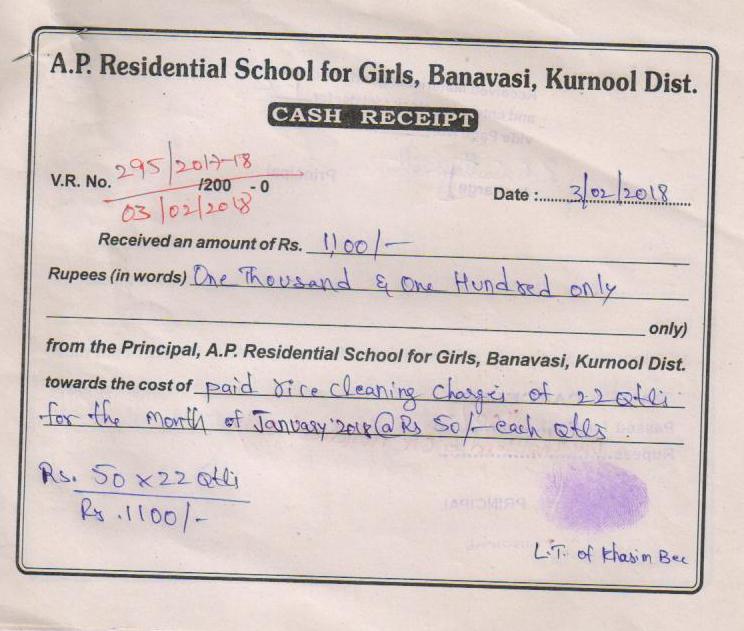 A.P. Residential School for Girls, Banavasi, Kurnool Dist.
CASH RECEIPT
V.R. No. 295/2017-18
/200 - 0
03/02/2018
Date :..... 3/02/2018
Received an amount of Rs. 1,100/-
Rupees (in words) One Thousand & One Hundred only
only)
from the Principal, A.P. Residential School for Girls, Banavasi, Kurnool Dist.
towards the cost of paid rice cleaning charges of 22 Qtls
for the month of January'2018 @ Rs 50/- each Qtls
Rs. 50 x 22 Qtls
Rs. 1100/-
L.T. of Khasim Bee